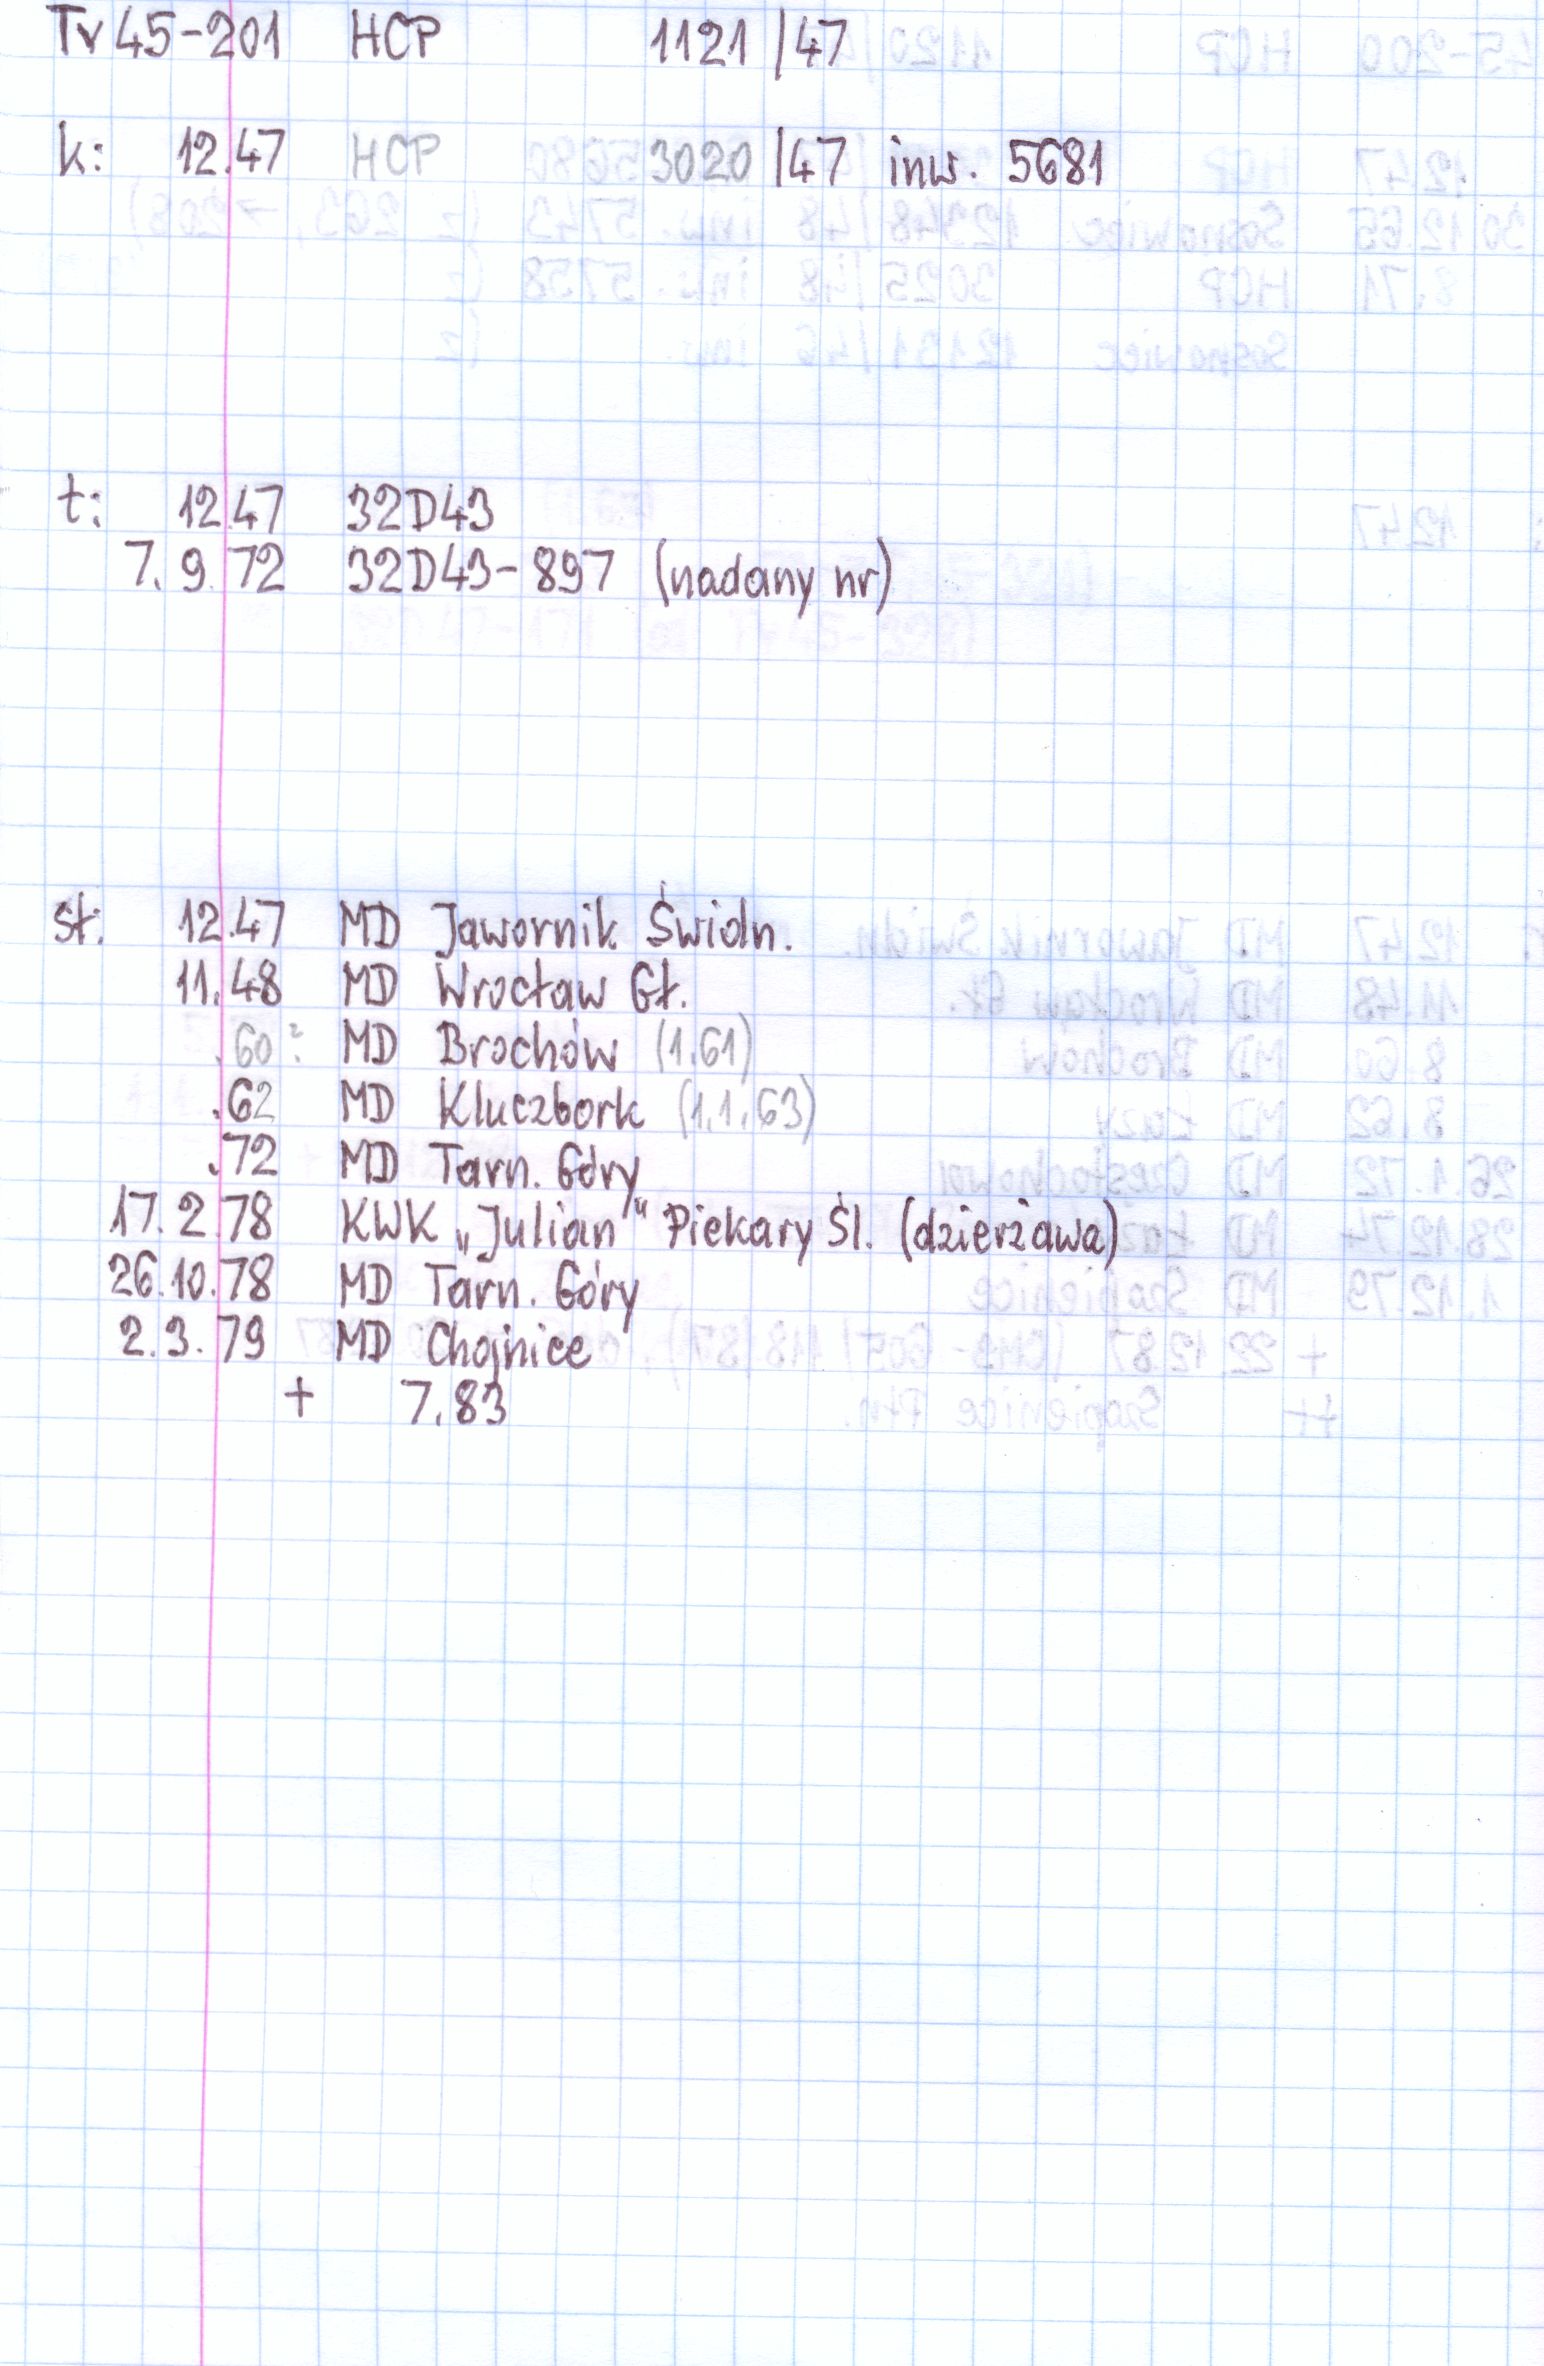 Tr 45-201 HCP 1121/47
k: 12.47 HCP 3020/47 inw. 5681
t: 12.47 32D43
7.9.72 32D43-897 (nadany nr)
st: 12.47 MD Jawornik Świdn.
11.48 MD Wrocław Gł.
.60? MD Brochów (1.61)
.62 MD Kluczbork (1.1.63)
.72 MD Tarn. Góry
17.2.78 KWK „Julian" Piekary Śl. (dzierżawa)
26.10.78 MD Tarn. Góry
2.3.79 MD Chojnice
+ 7.83